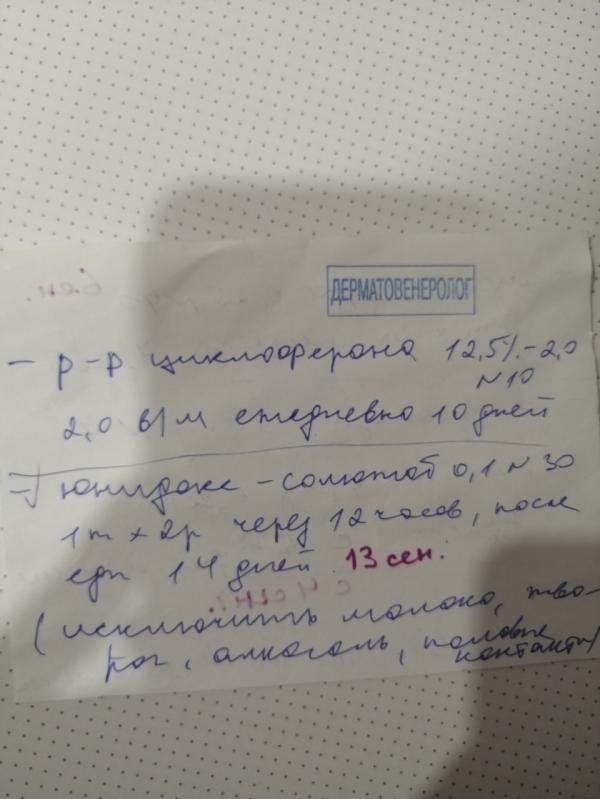 ДЕРМАТОВЕНЕРОЛОГ
– р-р циклоферона 12,5% – 2,0
N10
2,0 в/м ежедневно 10 дней
– Юнидокс – солютаб 0,1 N 30
1т х 2р через 12 часов, после
еды 14 дней. 13 сен.
(исключить молоко, тво-
рог, алкоголь, половые
контакты)